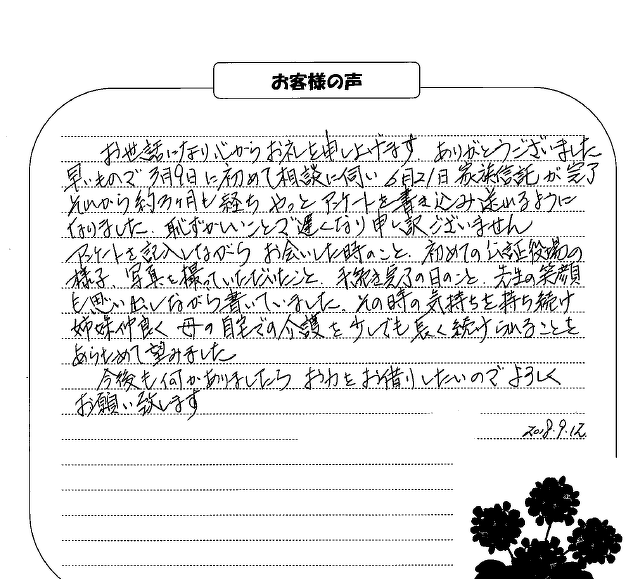 お客様の声
お世話になり心からお礼を申し上げます ありがとうございました
早いもので3月9日に初めて相談に伺い 6月21日家族信託が完了
それから約3ヶ月も経ち やっとアケートを書き込み送れるように
なりました。恥ずかしいことで遅くなり申し訳ございません
アケートを記入しながら お会いした時のこと、初めての公証役場の
様子、写真を撮っていただいたこと、手続き完了の日のこと、先生の笑顔
も思い出しながら書いていました。その時の気持ちを持ち続け
姉妹仲良く 母の自宅での介護を少しでも長く続けられることを
あらためて望みました
今後も何かありましたら お力をお借りしたいので よろしく
お願い致します
2018.9.12